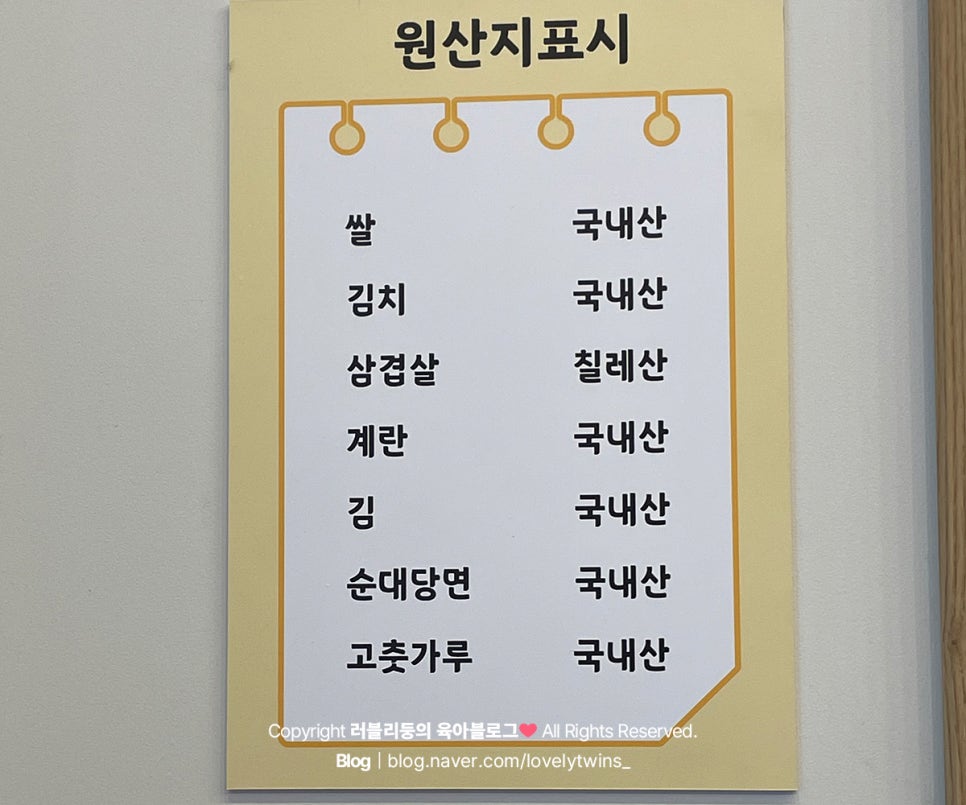 원산지표시
쌀 국내산
김치 국내산
삼겹살 칠레산
계란 국내산
김 국내산
순대당면 국내산
고춧가루 국내산
Copyright 러블리둥의 육아블로그❤️ All Rights Reserved.
Blog | blog.naver.com/lovelytwins_